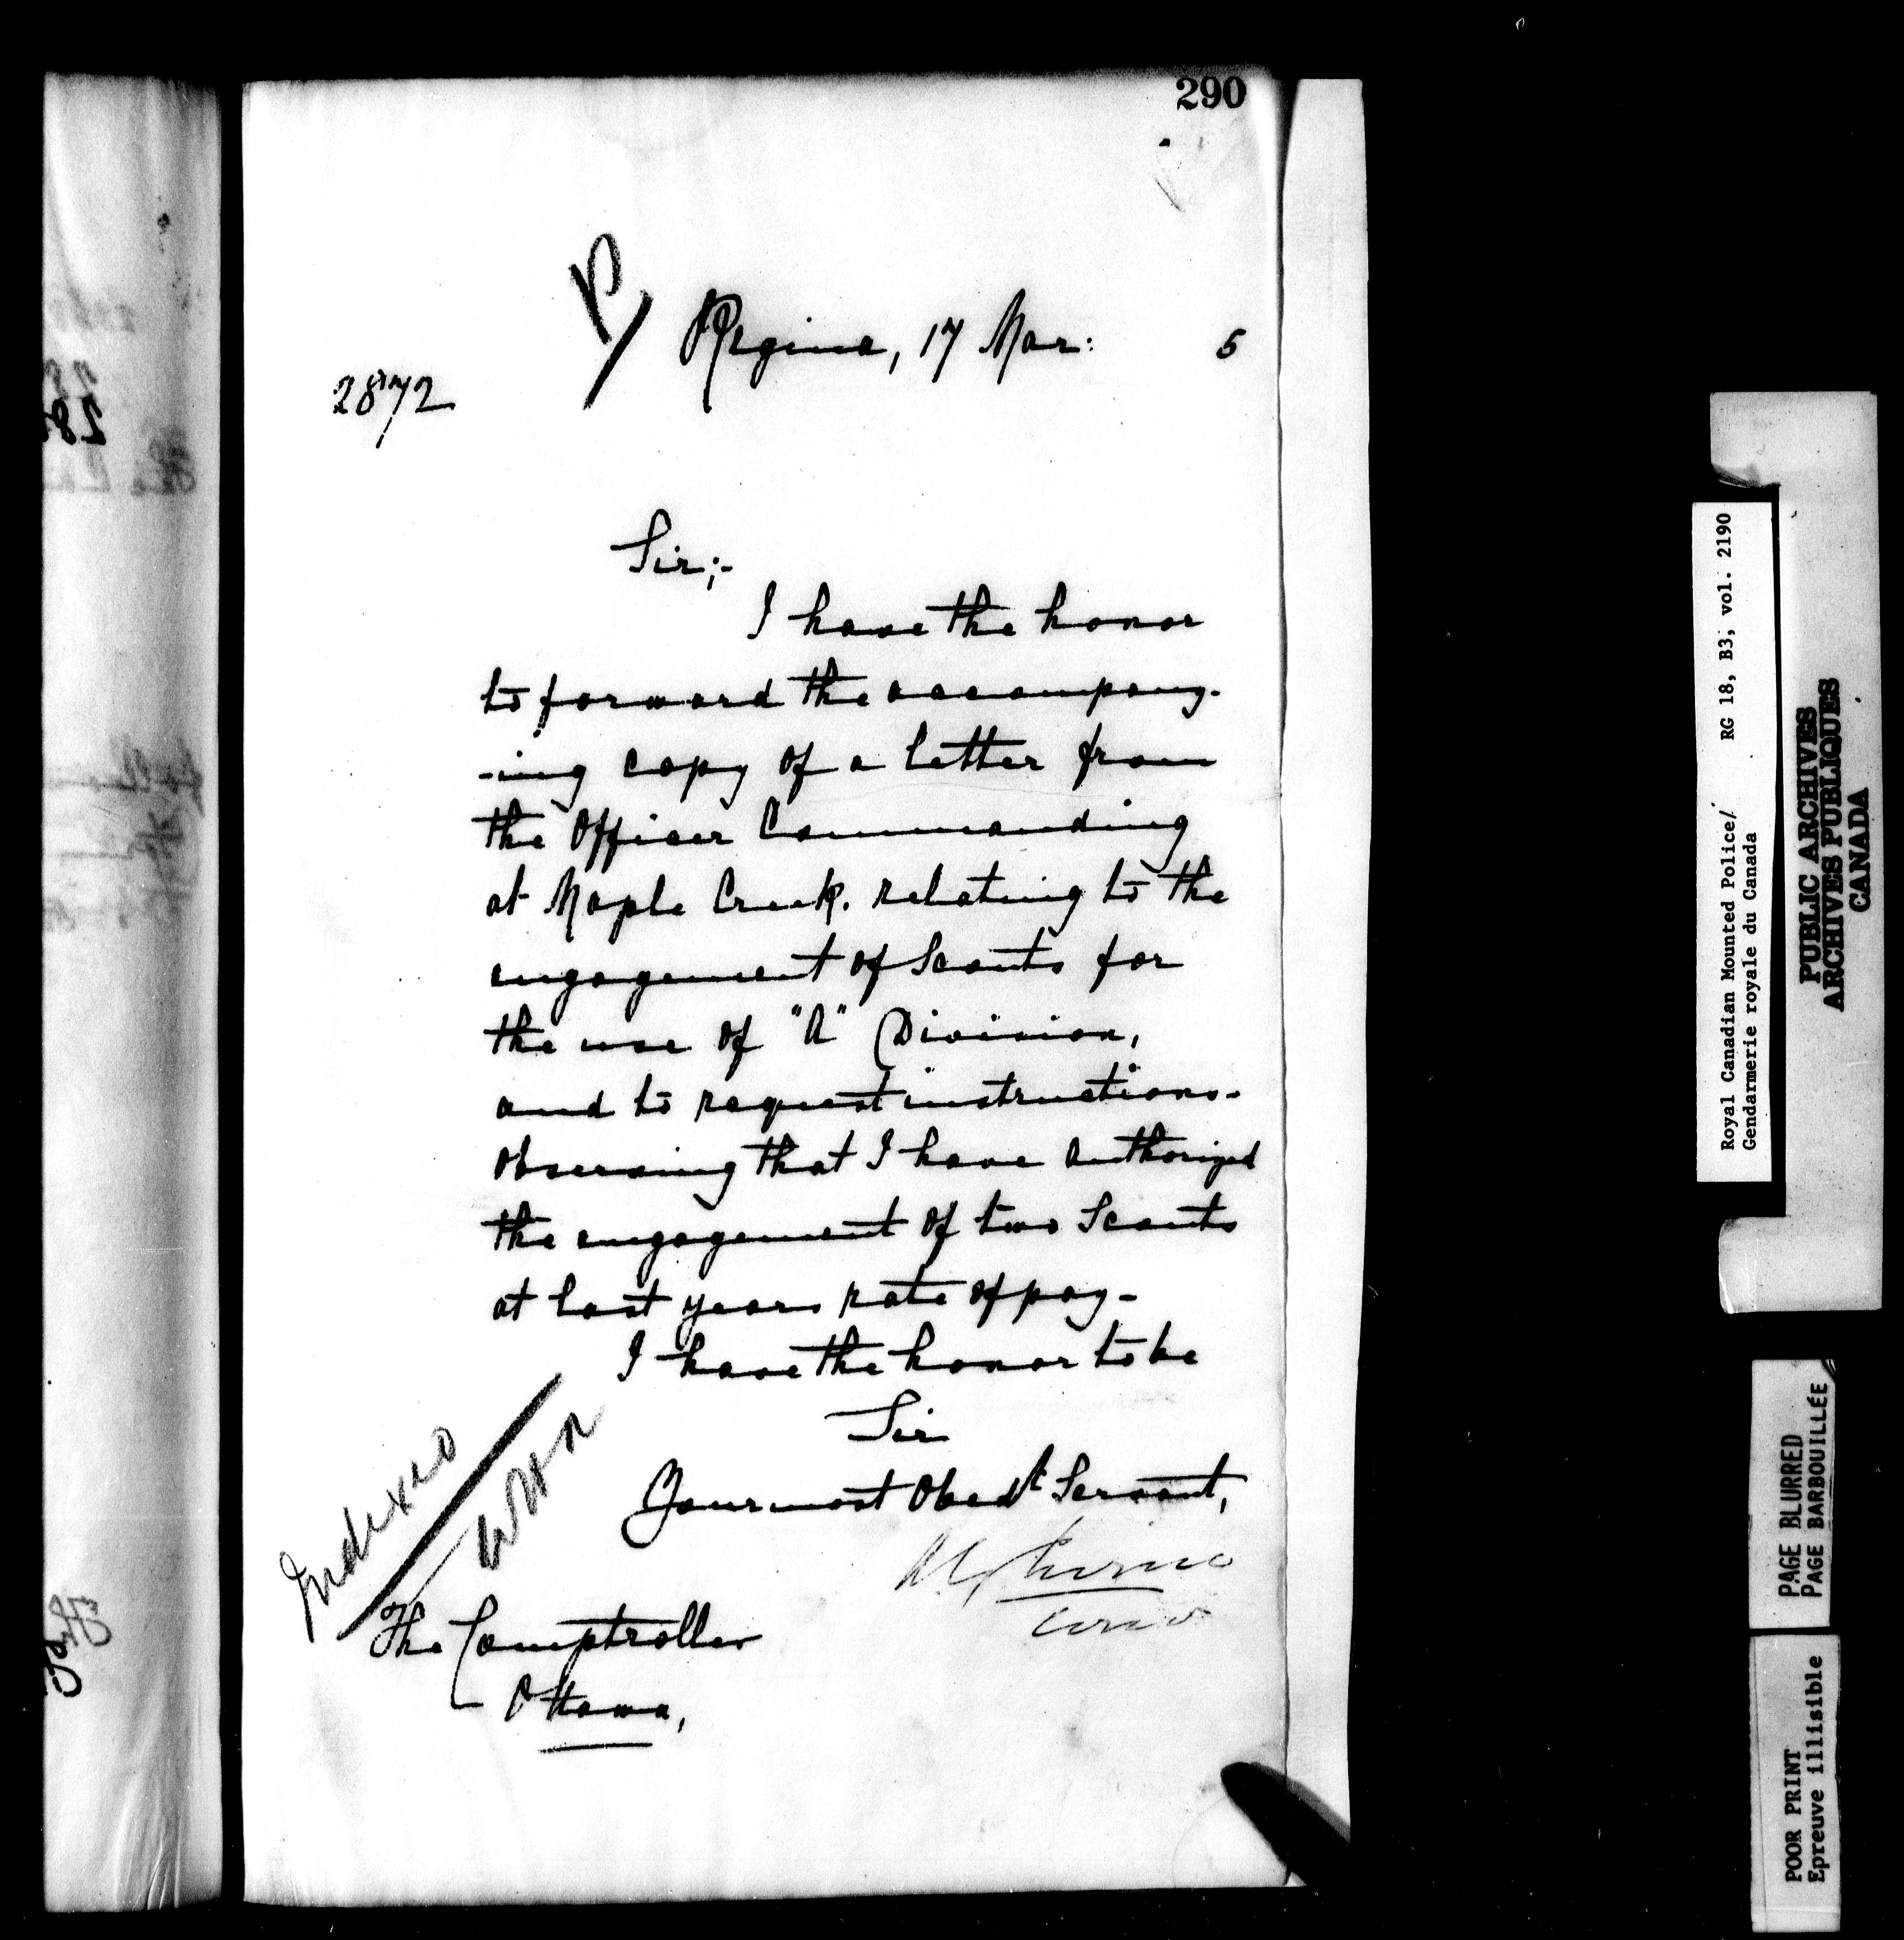 290
Regina, 17 Mar: 5
2872
Sir;-
I have the honor
to forward the accompany-
-ing copy of a letter from
the Officer Commanding
at Maple Creek. relating to the
engagement of Scouts for
the use of "A" Division,
and to request instructions-
observing that I have authorized
the engagement of two Scouts
at last years rate of pay-
I have the honor to be
Sir
Your most Obedt Servant,
Indexed
The Comptroller
Ottawa,
Royal Canadian Mounted Police/ RG 18, B3, vol. 2190
Gendarmerie royale du Canada
PUBLIC ARCHIVES
ARCHIVES PUBLIQUES
CANADA
PAGE BLURRED
PAGE BARBOUILLÉE
POOR PRINT
Epreuve illisible